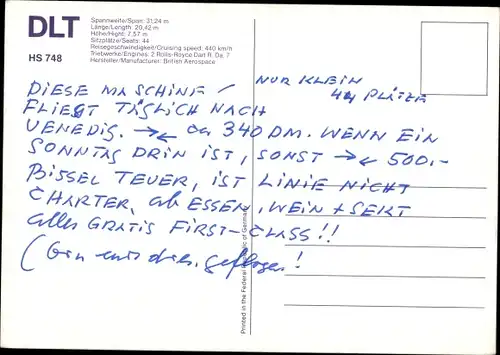 DLT
HS 748
Spannweite/Span: 31,24 m
Länge/Length: 20,42 m
Höhe/Hight: 7,57 m
Sitzplätze/Seats: 44
Reisegeschwindigkeit/Cruising speed: 440 km/h
Triebwerke/Engines: 2 Rolls-Royce Dart R. Da. 7
Hersteller/Manufacturer: British Aerospace
NUR KLEIN
44 PLÄTZE
DIESE MASCHINE /
FLIEGT TÄGLICH NACH
VENEDIG. →← ca 340 DM. WENN EIN
SONNTAG DRIN IST, SONST →← 500,-
BISSEL TEUER, IST LINIE NICHT
CHARTER, ab ESSEN, WEIN + SEKT
alles GRATIS FIRST-CLASS!!
(Bin geflogen!
Printed in the Federal Republic of Germany